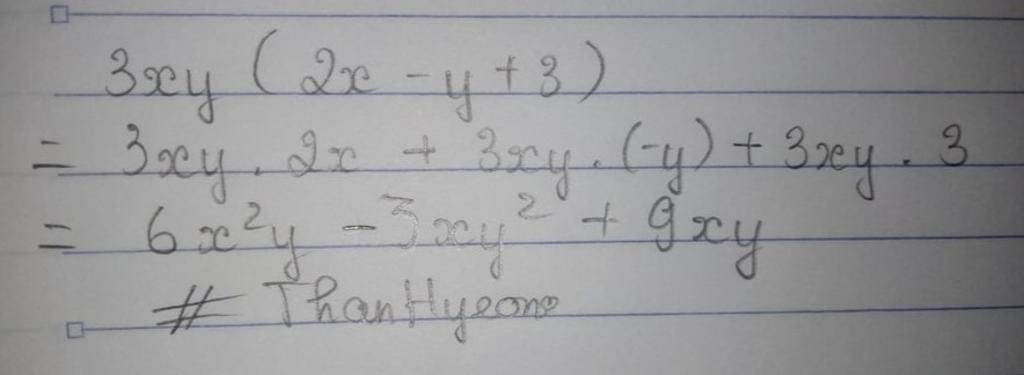 3xy ( 2x - y + 3 )
= 3xy . 2x + 3xy . (-y) + 3xy . 3
= 6x²y - 3xy² + 9xy
# ThanHyeono